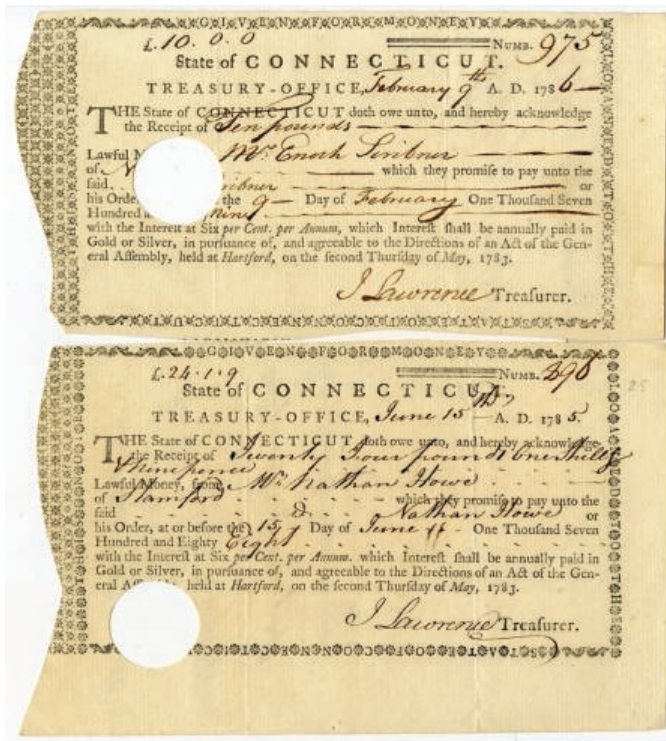 GIVEN FOR MONEY
£.10.0.0 NUMB. 975
State of CONNECTICUT.
TREASURY-OFFICE, February 9th A. D. 1786
THE State of CONNECTICUT doth owe unto, and hereby acknowledge
the Receipt of Ten pounds
Lawful Mr. Enoch Scribner
of which they promise to pay unto the
said or
his Order, the 9 Day of February One Thousand Seven
Hundred nine
with the Interest at Six per Cent. per Annum, which Interest shall be annually paid in
Gold or Silver, in pursuance of, and agreeable to the Directions of an Act of the Gen-
eral Assembly, held at Hartford, on the second Thursday of May, 1783.
J Lawrence Treasurer.
STATE OF CONNECTICUT
LOANED TO THE
GIVEN FOR MONEY
£.24.1.9 NUMB. 298
State of CONNECTICUT.
TREASURY-OFFICE, June 15th A. D. 1785.
THE State of CONNECTICUT doth owe unto, and hereby acknowledge
the Receipt of Twenty Four pounds One Shillg
& Nine pence
Lawful Money, from Mr. Nathan Howe
of Stamford which they promise to pay unto the
said Nathan Howe or
his Order, at or before the 15 Day of June One Thousand Seven
Hundred and Eighty Eight
with the Interest at Six per Cent. per Annum. which Interest shall be annually paid in
Gold or Silver, in pursuance of, and agreeable to the Directions of an Act of the Gen-
eral held at Hartford, on the second Thursday of May, 1783.
J Lawrence Treasurer.
STATE OF CONNECTICUT
LOANED TO THE
25